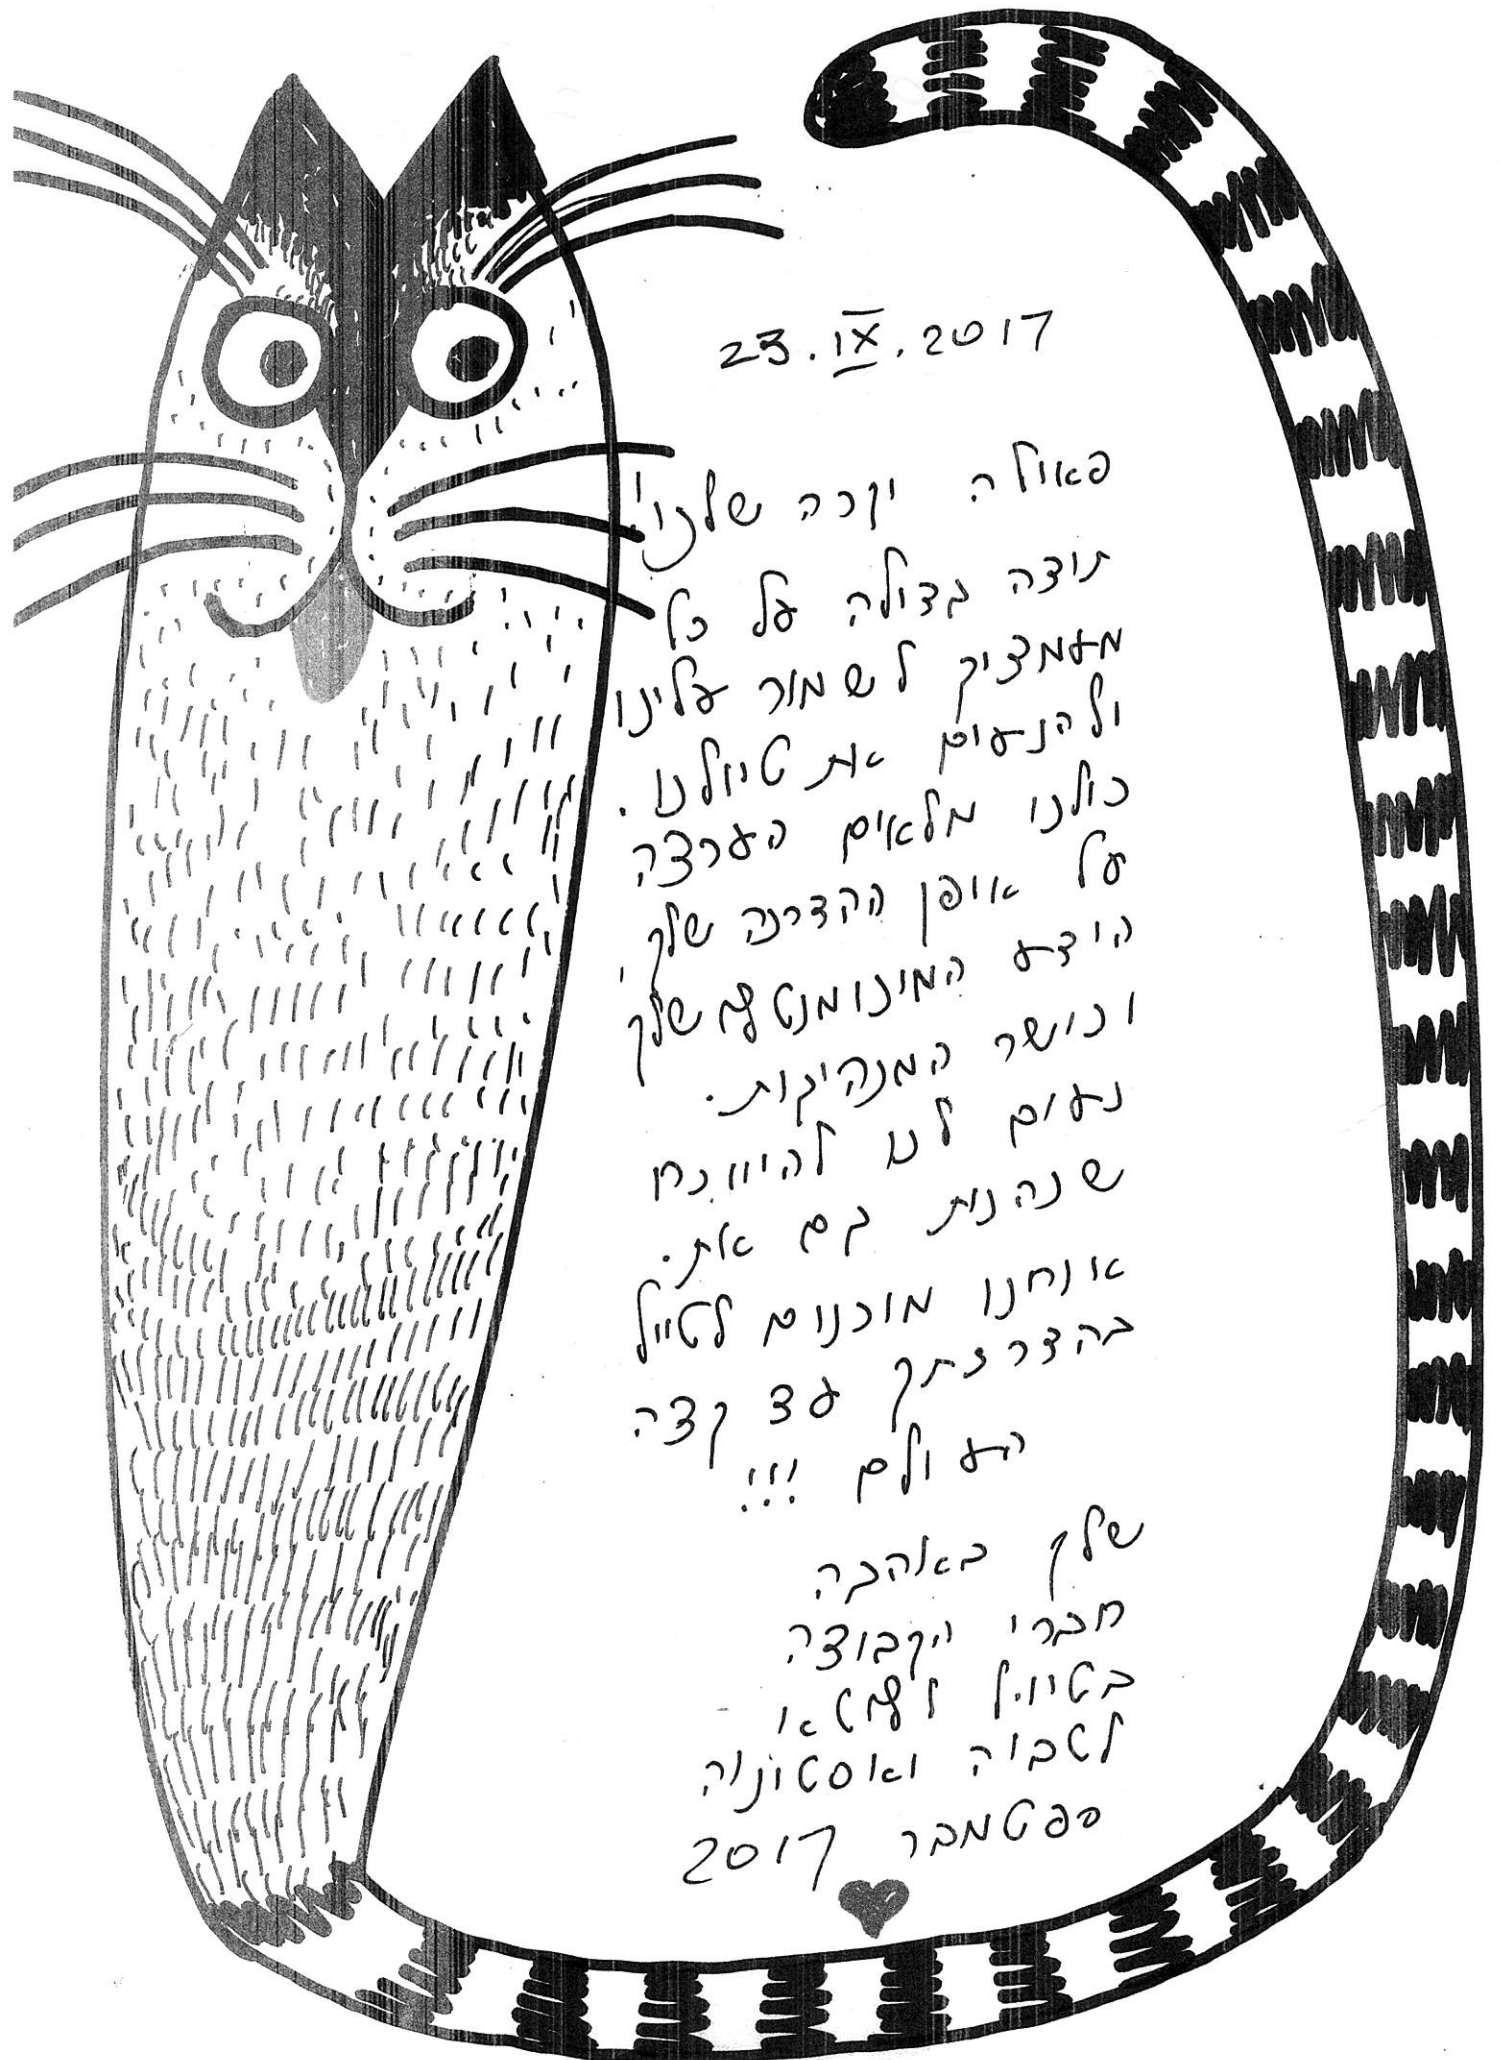 23.IX.2017
פאולה יקרה שלנו!
תודה גדולה על כל
מאמציך לשמור עלינו
ולהנעים את טיולנו.
כולנו מלאים הערצה
על אופן ההדרכה שלך,
הידע שלך
וכושר המנהיגות.
נעים לנו להיווכח
שנהנית גם את.
אנחנו מוכנים לטייל
בהדרכתך עד קצה
העולם!!!
שלך באהבה
חברי הקבוצה
בטיול
לטביה ואסטוניה
ספטמבר 2017